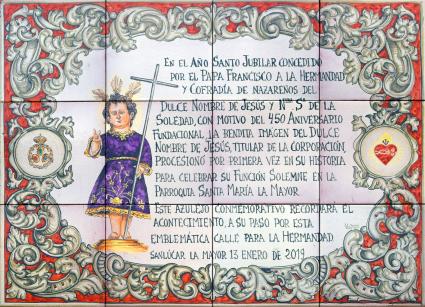 En el Año Santo Jubilar concedido
por el Papa Francisco a la Hermandad
y Cofradía de nazarenos del
Dulce Nombre de Jesús y Ntra. Sª de la
Soledad, con motivo del 450 Aniversario
Fundacional, la bendita imagen del Dulce
Nombre de Jesús, titular de la corporación,
procesionó por primera vez en su historia
para celebrar su Función Solemne en la
Parroquia Santa María la Mayor.
Este azulejo conmemorativo recordará el
acontecimiento, a su paso por esta
emblemática calle para la Hermandad
Sanlúcar la Mayor 13 enero de 2019